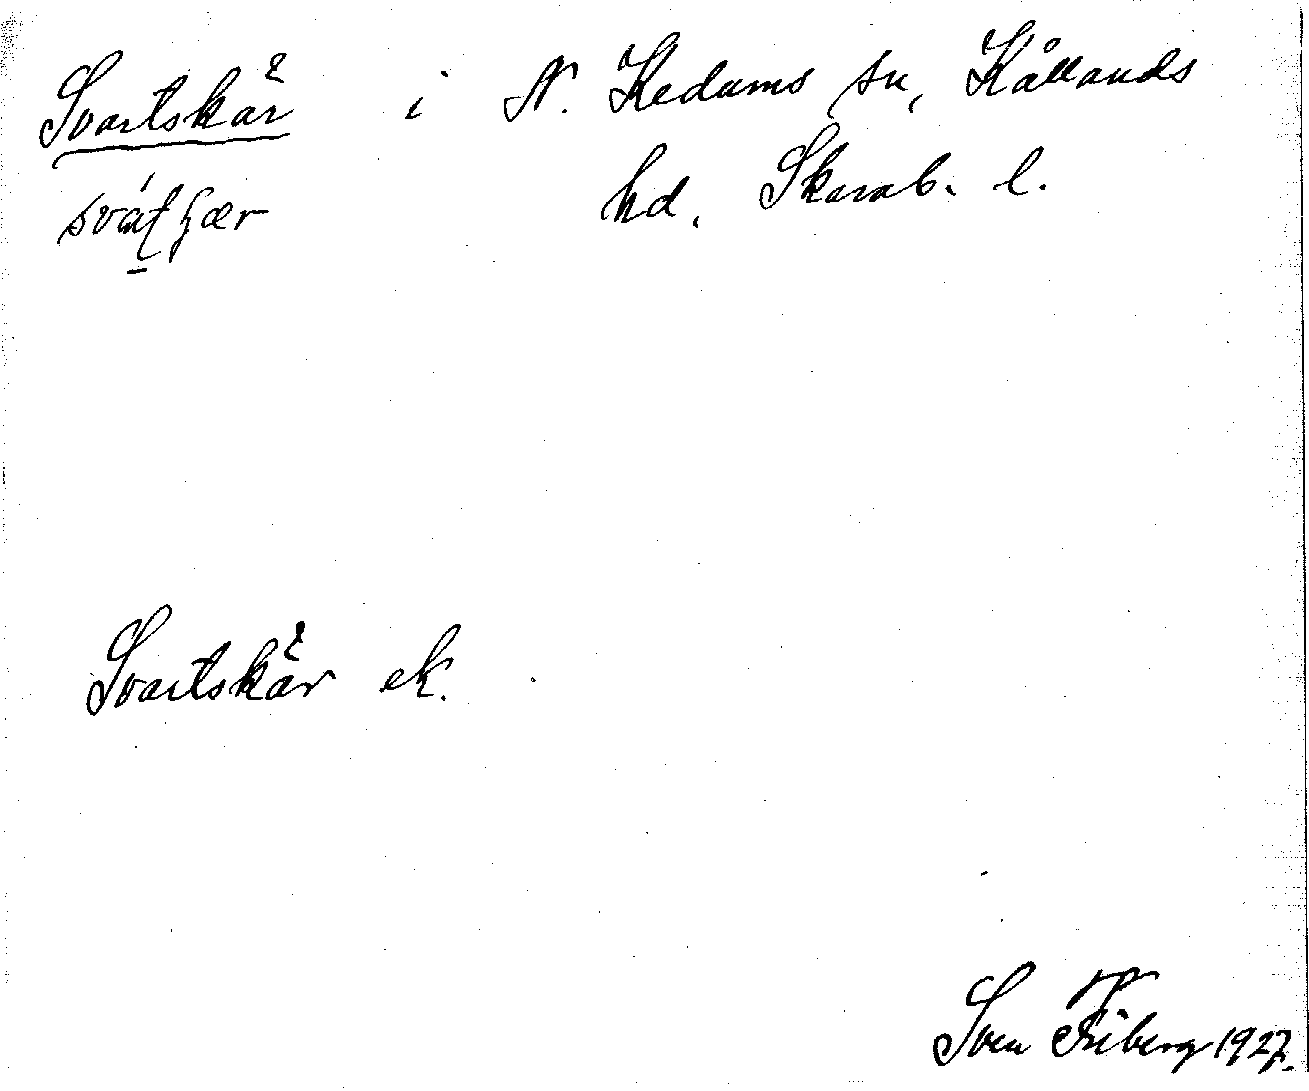 Svartskär i N. Kedums sn, Kållands
hd. Skarab. l.
Svartskär ek.
Sven Friberg 1927.